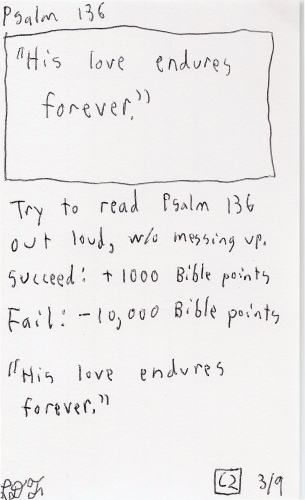 Psalm 136
"His love endures
forever."
Try to read Psalm 136
out loud, w/o messing up.
Succeed: + 1000 Bible points
Fail: -10,000 Bible points
"His love endures
forever."
C2 3/9